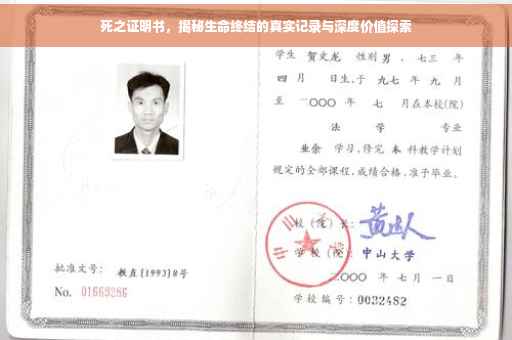 死之证明书，揭秘生命终结的真实记录与深度价值探索
学生 贺文龙 性别 男 ，七三 年
四 月 日生，于 九七 年 九 月
至 二〇〇〇 年 七 月在本校(院)
法 学 专业
业余 学习，修完 本 科教学计划
规定的全部课程，成绩合格，准予毕业。
校（院）长：
学校（院）： 中山大学
二〇〇〇 年 七 月 一 日
批准文号： 教直[1993]8号
No. 01669286
学校编号：0032482